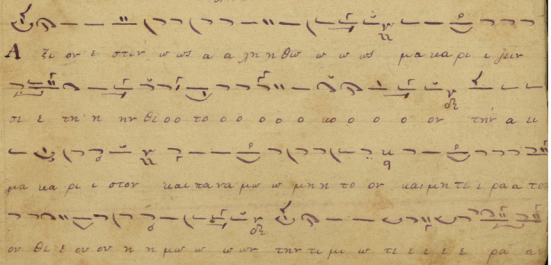 Α ξι ον ε στιν ω ως α α λη η θω ω ω ως μα κα ρι ι ζειν
σε ε τη η ην θε ο ο το ο ο ο ο ο ο ο ον την α ει
μα κα ρι ι στον και πα να μω ω μη η το ον και μη τε ε ρα α του
ου θε ε ου ου η η μω ω ω ων την τι μι ω τε ε ε ε ε ρα αν